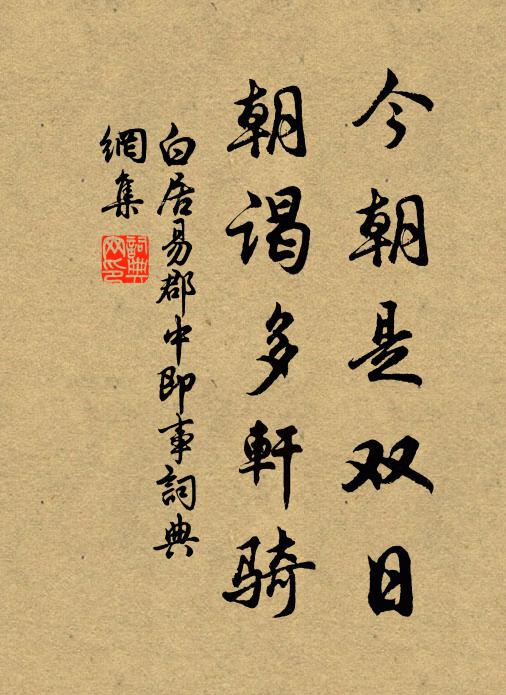 今朝是双日
朝谒多軒骑
白居易郡中即事詞典
網集
詞典网印